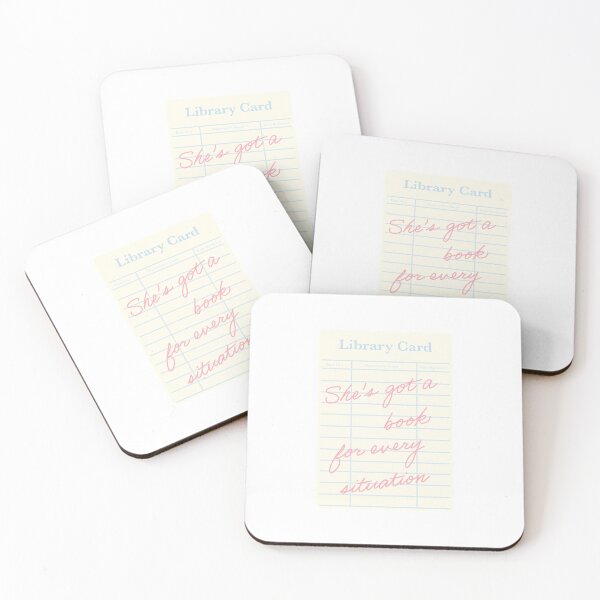 Library Card
She's got a
Library Card
She's got a
book
for every
Library Card
She's got a
book
for every
situation
Library Card
She's got a
book
for every
situation